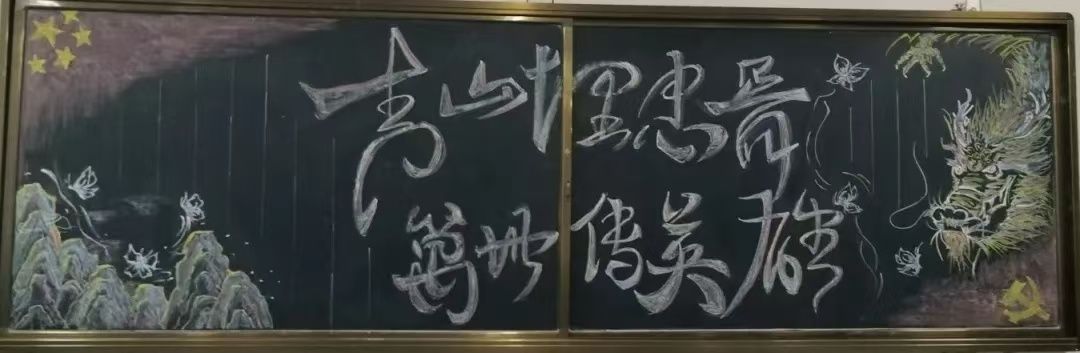 青山埋忠骨
萬世传英雄